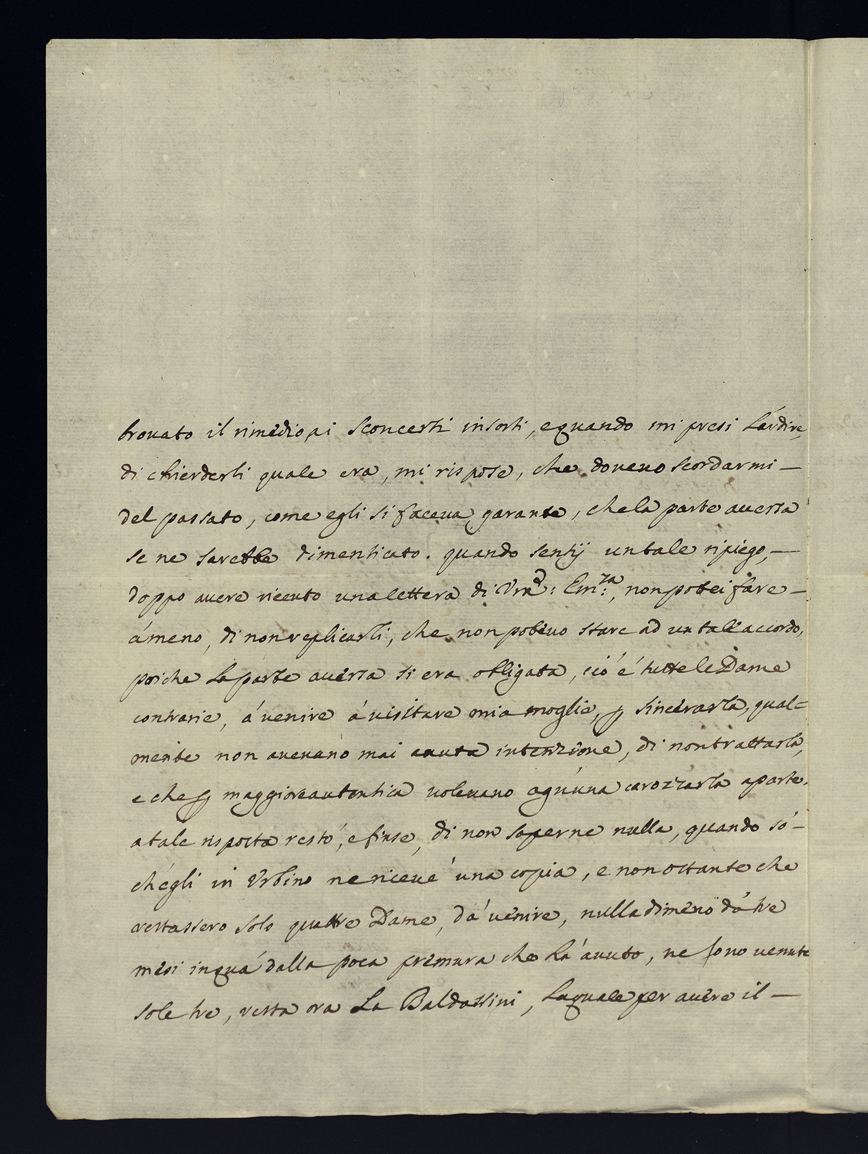 trovato il rimedio, ai sconcerti insorti, e quando mi presi L'ardire,
di chiederli quale era, mi rispose, che dovevo scordarmi —
del passato, come egli si faceva garante, che la parte aversa
se ne sarebbe dimenticato. quando sentij un tale ripiego, —
doppo avere riceuto una lettera di Vrã: Em:za, non potei fare —
á meno, di non replicarli, che non potevo stare ad un tal'accordo,
poiche La parte aversa si era obligata, ció é tutte le Dame
contrarie, á venire á visitare mia moglie, p sincerarla, qual-
mente non avevano mai avuta intenzione, di non trattarla,
e che p maggiore autentica volevano ogn'una carozzarla a parte.
a tale risposta restó, e finse, di non saperne nulla, quando só —
ch'egli in Urbino ne riceué una copia, e non ostante che
restassero solo quattro Dame, dá venire, nulladimeno dá tre
mesi in quá dalla poca premura che há avuto, ne sono venute
sole tre, resta ora La Baldassini, La quale per avere il —